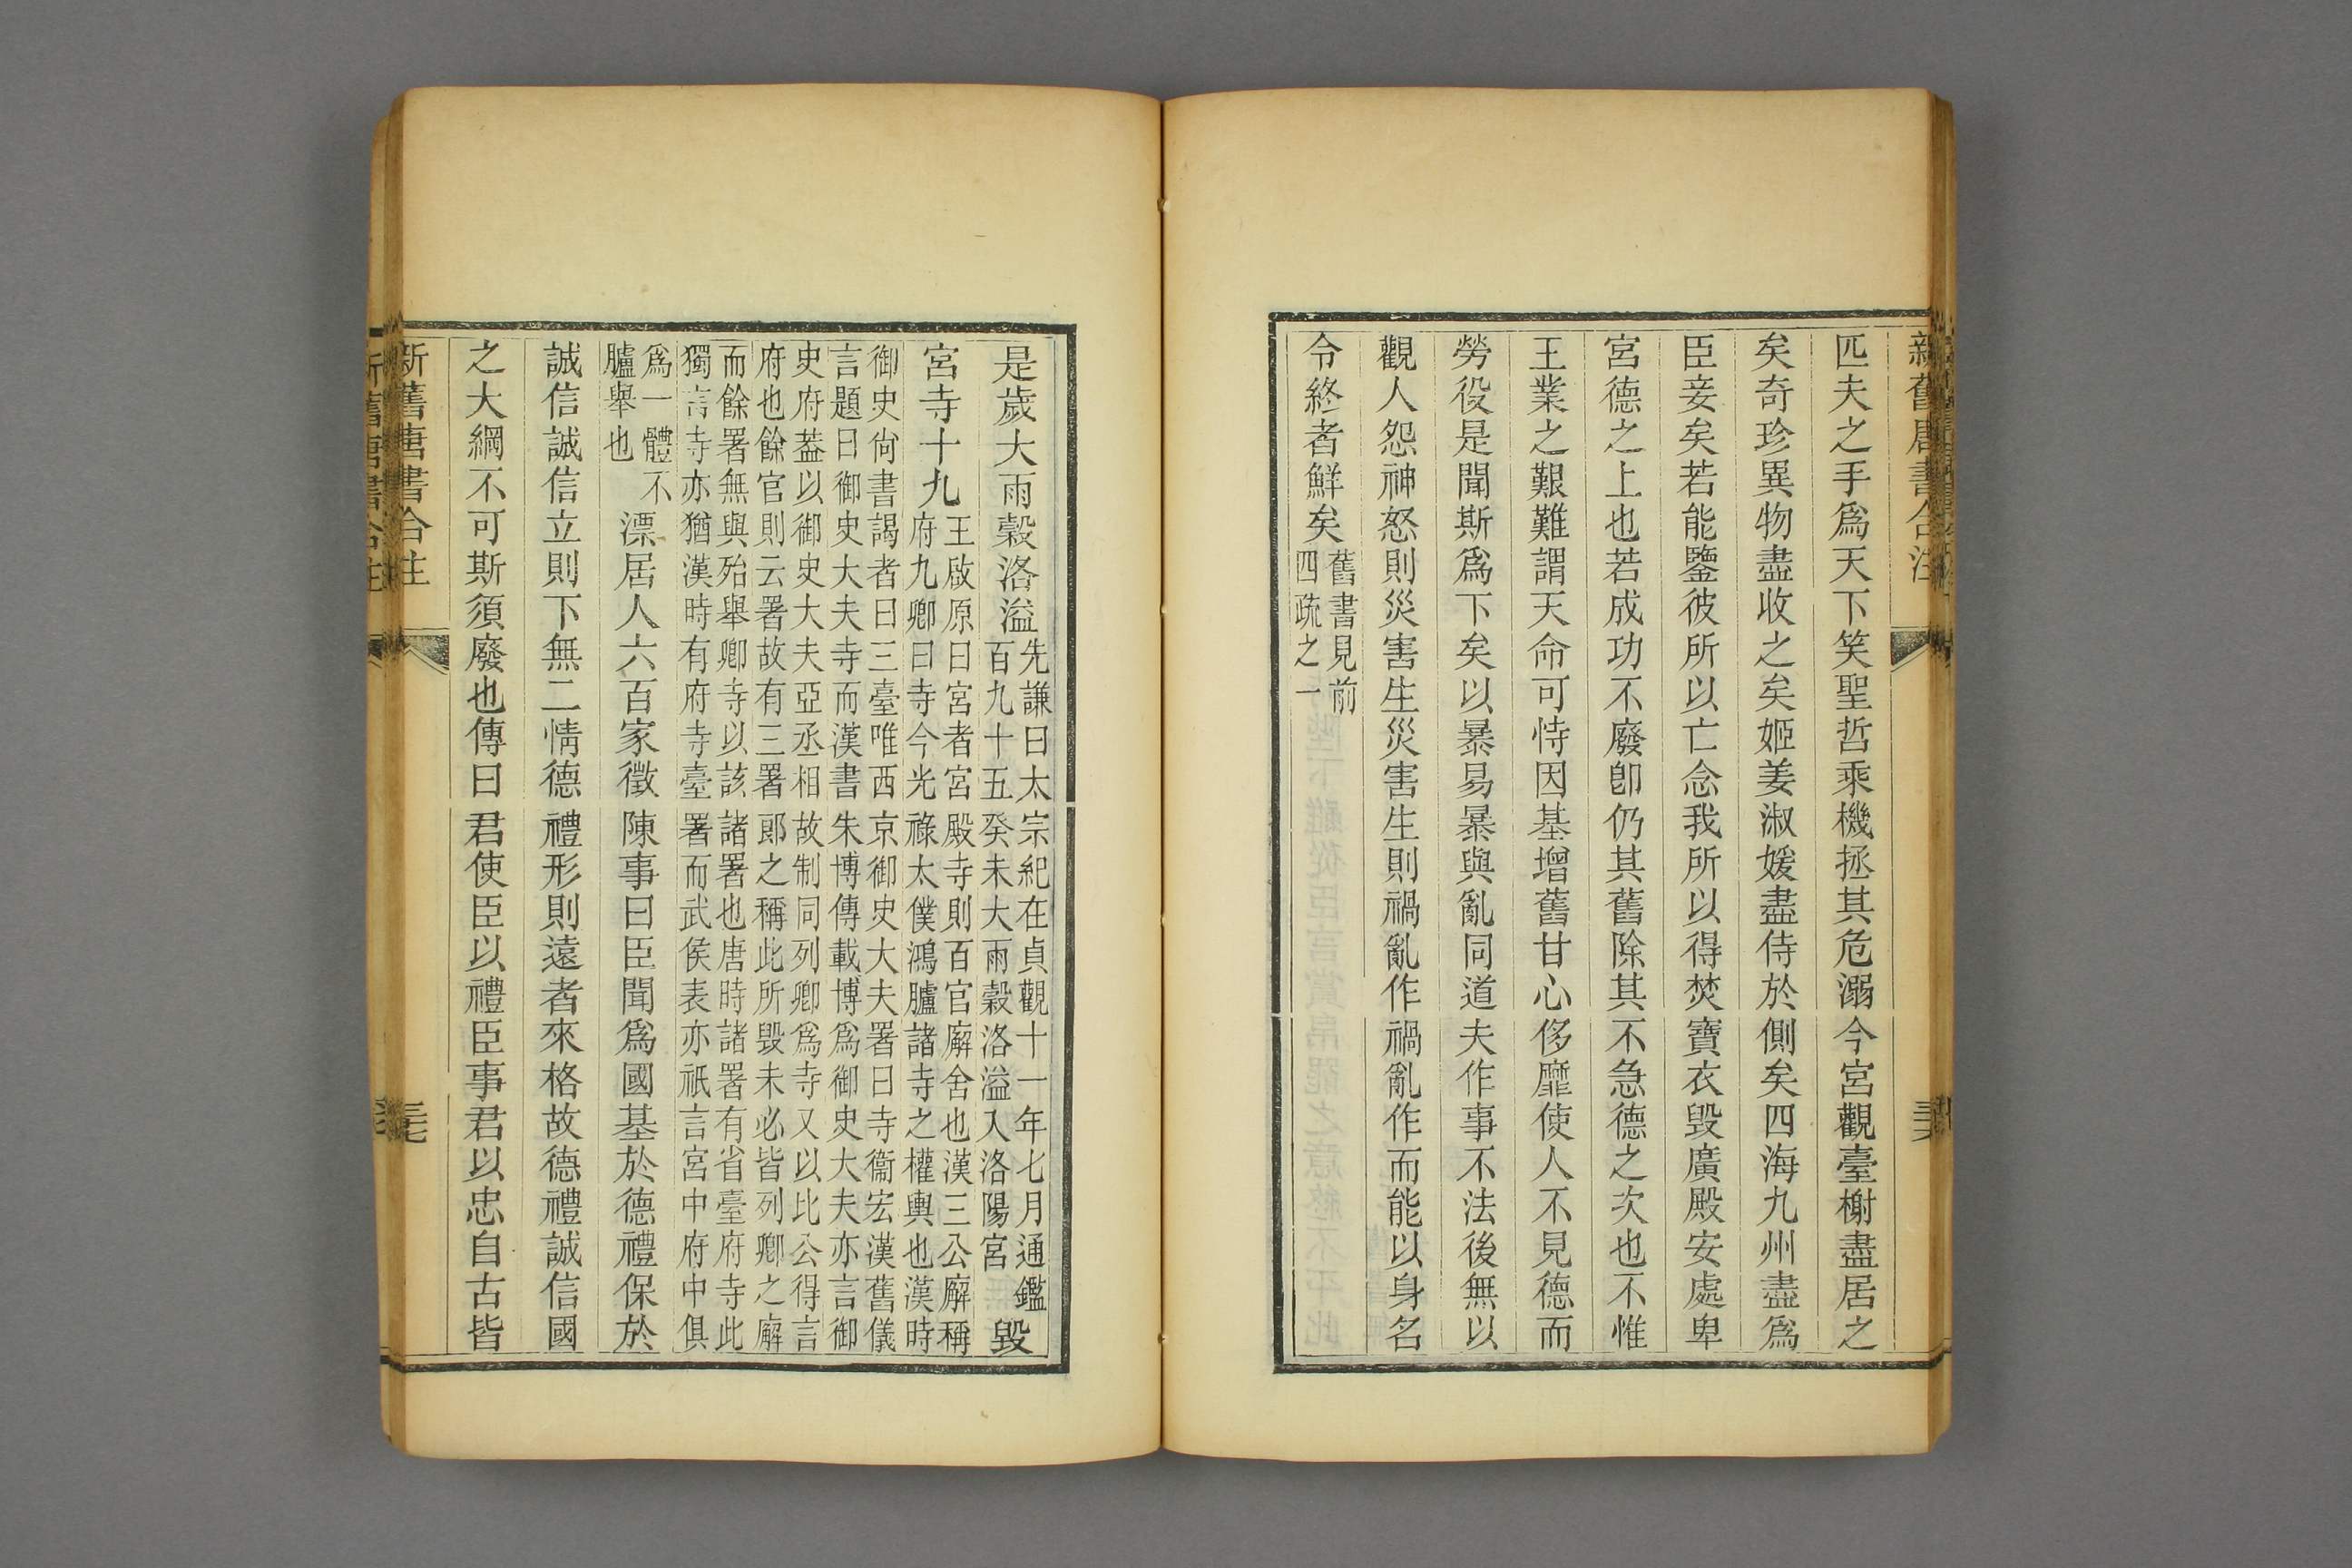 新舊唐書合注
匹夫之手爲天下笑聖哲乘機拯其危溺今宮觀臺榭盡居之
矣奇珍異物盡收之矣姬姜淑媛盡侍於側矣四海九州盡爲
臣妾矣若能鑒彼所以亡念我所以得焚寶衣毀廣殿安處卑
宮德之上也若成功不廢卽仍其舊除其不急德之次也不惟
王業之艱難謂天命可恃因基增舊甘心侈靡使人不見德而
勞役是聞斯爲下矣以暴易暴與亂同道夫作事不法後無以
觀人怨神怒則災害生災害生則禍亂作禍亂作而能以身名
令終者鮮矣
舊書見前
四疏之一
是歲大雨穀洛溢
先謙曰太宗紀在貞觀十一年七月通鑑
百九十五癸未大雨穀洛溢入洛陽宮
毀
宮寺十九
王啟原曰宮者宮殿寺則百官廨舍也漢三公廨稱
府九卿曰寺今光祿太僕鴻臚諸寺之權輿也漢時
御史尙書謁者曰三臺唯西京御史大夫署曰寺衞宏漢舊儀
言題曰御史大夫寺而漢書朱博傳載博爲御史大夫亦言御
史府葢以御史大夫亞丞相故制同列卿爲寺又以比公得言
府也餘官則云署故有三署郞之稱此所毀未必皆列卿之廨
而餘署無與殆舉卿寺以該諸署也唐時諸署有省臺府寺此
獨言寺亦猶漢時有府寺臺署而武侯表亦祇言宮中府中俱
爲一體不
臚舉也
漂居人六百家徵陳事曰臣聞爲國基於德禮保於
誠信誠信立則下無二情德禮形則遠者來格故德禮誠信國
之大綱不可斯須廢也傳曰君使臣以禮臣事君以忠自古皆
新舊唐書合注
三七